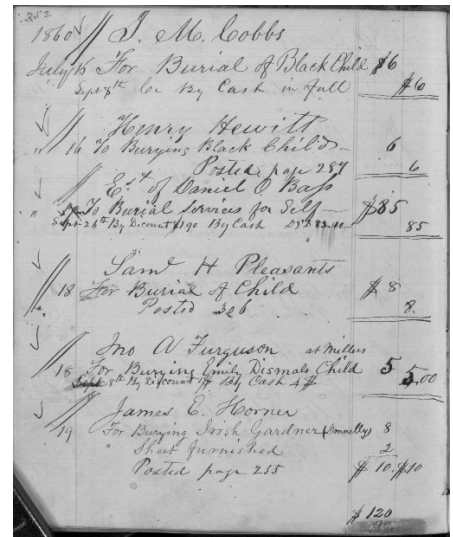 252
1860 J. M. Cobbs
July 15 For Burial of Black Child $6
Sept 8th Cr By Cash in full $6
Henry Hewitt
" 16 To Burying Black Child 6
Posted page 287 6
Est of Daniel O Bass
" To Burial Services for Self $85
Sept 26th By Discount $1.90 By Cash 85
Saml H Pleasants
" 18 For Burial of Child $8
Posted 306 8.
Jno A Furguson at Millers
18 For Burying Emily Dismals Child 5 5.00
Sept 8th By Discount 1$ By Cash 4$
James E. Horner
19 For Burying Irish Gardner (Donnelly) 8
" Sheet furnished 2
Posted page 255 $10 $10
$120